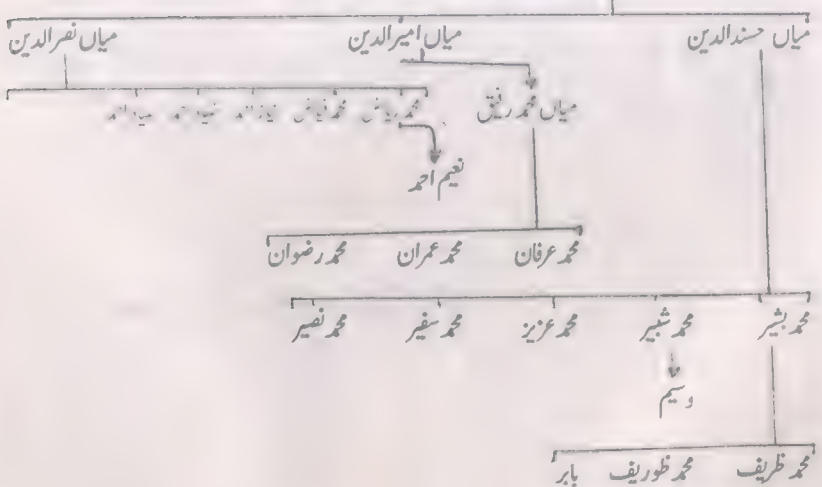 میاں حسندالدین میاں امیرالدین میاں نصرالدین
میاں محمد رفیق محمد ریاض محمد فیاض نیاز احمد
نعیم احمد
محمد عرفان محمد عمران محمد رضوان
محمد بشیر محمد شبیر محمد عزیز محمد سفیر محمد نصیر
وسیم
محمد ظریف محمد ظوریف بابر